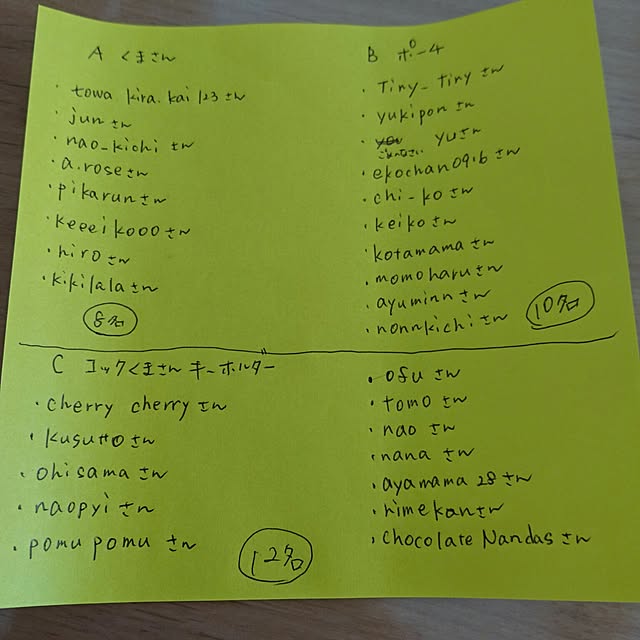 A くまさん
・towa kira.kai 123 さん
・junさん
・nao_kichi さん
・a.roseさん
・pikarunさん
・keeeikooo さん
・hiro さん
・kikilala さん
8名
B ポー4
・Tiny_tiny さん
・yukipon さん
・you yuさん
ごめんなさい
・ekochan0916 さん
・chi_ko さん
・keiko さん
・kotamama さん
・momoharu さん
・ayuminn さん
・nonnkichi さん
10名
C コックくまさん キーホルダー
・cherry cherry さん
・kusutto さん
・ohisama さん
・naopyi さん
・pomu pomu さん
・ofu さん
・tomo さん
・nao さん
・nana さん
・ayamama 28 さん
・rimekanさん
・chocolate Nandas さん
12名